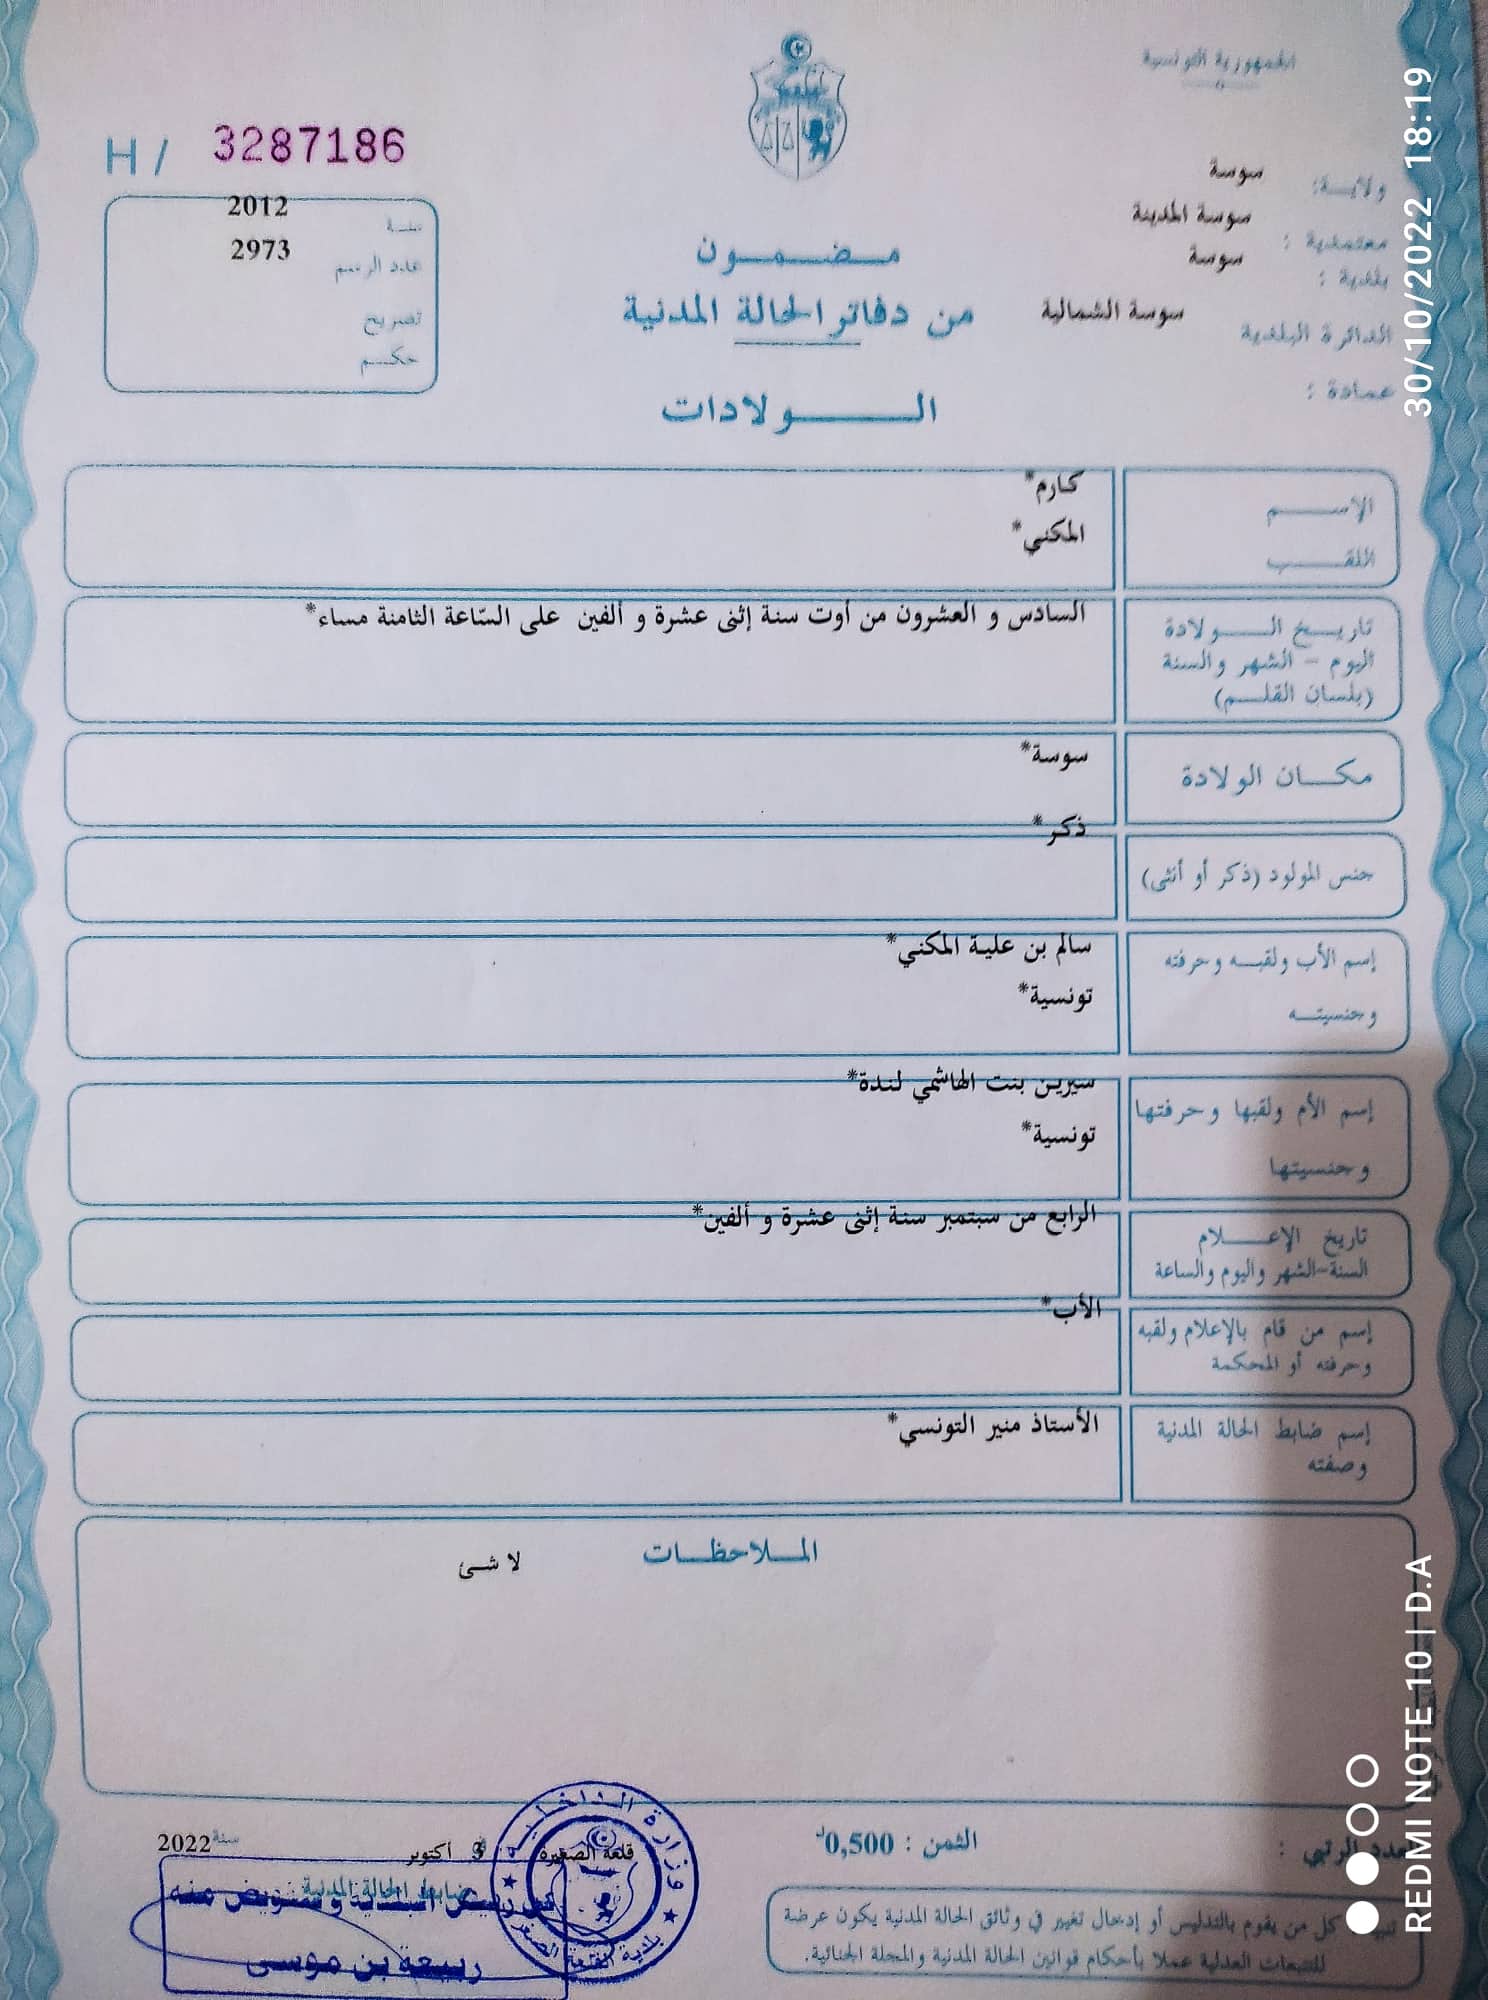 الجمهورية التونسية
H / 3287186
ولاية: سوسة
معتمدية : سوسة المدينة
بلدية : سوسة
الدائرة البلدية سوسة الشمالية
عمادة :
سنة 2012
عدد الرسم 2973
تصريح
حكم
مضمون
من دفاتر الحالة المدنية
الولادات
الاسم كارم*
اللقب المكني*
تاريخ الولادة السادس و العشرون من أوت سنة إثنى عشرة و ألفين على السّاعة الثامنة مساء*
اليوم - الشهر والسنة
(بلسان القلم)
مكان الولادة سوسة*
جنس المولود (ذكر أو أنثى) ذكر*
إسم الأب ولقبه وحرفته سالم بن علية المكني*
وجنسيته تونسية*
إسم الأم ولقبها وحرفتها سيرين بنت الهاشمي لندة*
وجنسيتها تونسية*
تاريخ الإعلام الرابع من سبتمبر سنة إثنى عشرة و ألفين*
السنة-الشهر واليوم والساعة
إسم من قام بالإعلام ولقبه الأب*
وحرفته أو المحكمة
إسم ضابط الحالة المدنية الأستاذ منير التونسي*
وصفته
الملاحظات
لا شئ
عدد الرتبي :
الثمن : 0,500د
قلعة الصغيرة أكتوبر سنة 2022
ضابط الحالة المدنية
عن رئيس النيابة وبتفويض منه
ربيعة بن موسى
وزارة الداخلية
بلدية القلعة الصغرى
تنبيه كل من يقوم بالتدليس أو إدخال تغيير في وثائق الحالة المدنية يكون عرضة
للتتبعات العدلية عملا بأحكام قوانين الحالة المدنية والمجلة الجنائية.
30/10/2022 18:19
REDMI NOTE 10 | D.A